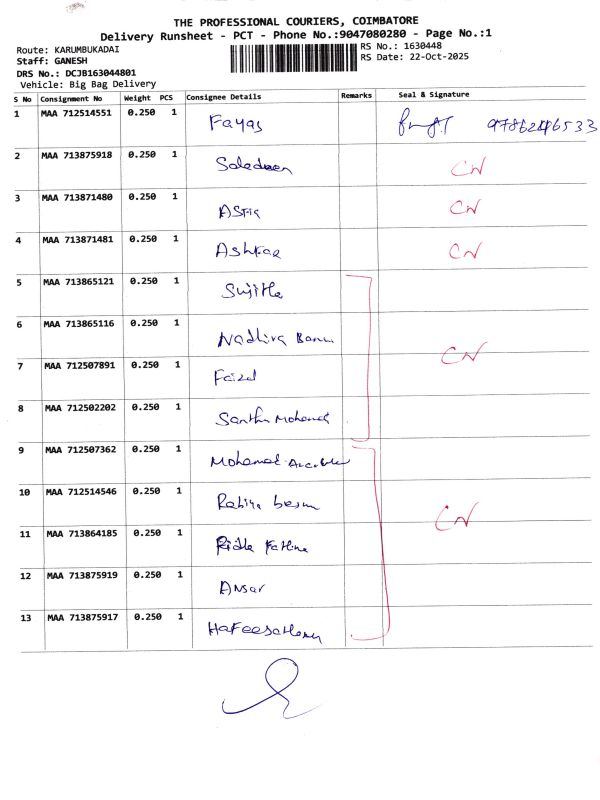 THE PROFESSIONAL COURIERS, COIMBATORE
Delivery Runsheet - PCT - Phone No.:9047080280 - Page No.:1
Route: KARUMBUKADAI
RS No.: 1630448
Staff: GANESH
RS Date: 22-Oct-2025
DRS No.: DCJB163044801
Vehicle: Big Bag Delivery
S No Consignment No Weight PCS Consignee Details Remarks Seal & Signature
1 MAA 712514551 0.250 1 Fayas
2 MAA 713875918 0.250 1 CN
3 MAA 713871480 0.250 1 CN
4 MAA 713871481 0.250 1 Ashkar CN
5 MAA 713865121 0.250 1
6 MAA 713865116 0.250 1 Nadhira Banu
7 MAA 712507891 0.250 1 Faizal CN
8 MAA 712502202 0.250 1 Mohamed
9 MAA 712507362 0.250 1 Mohamed
10 MAA 712514546 0.250 1 CN
11 MAA 713864185 0.250 1
12 MAA 713875919 0.250 1 Ansar
13 MAA 713875917 0.250 1